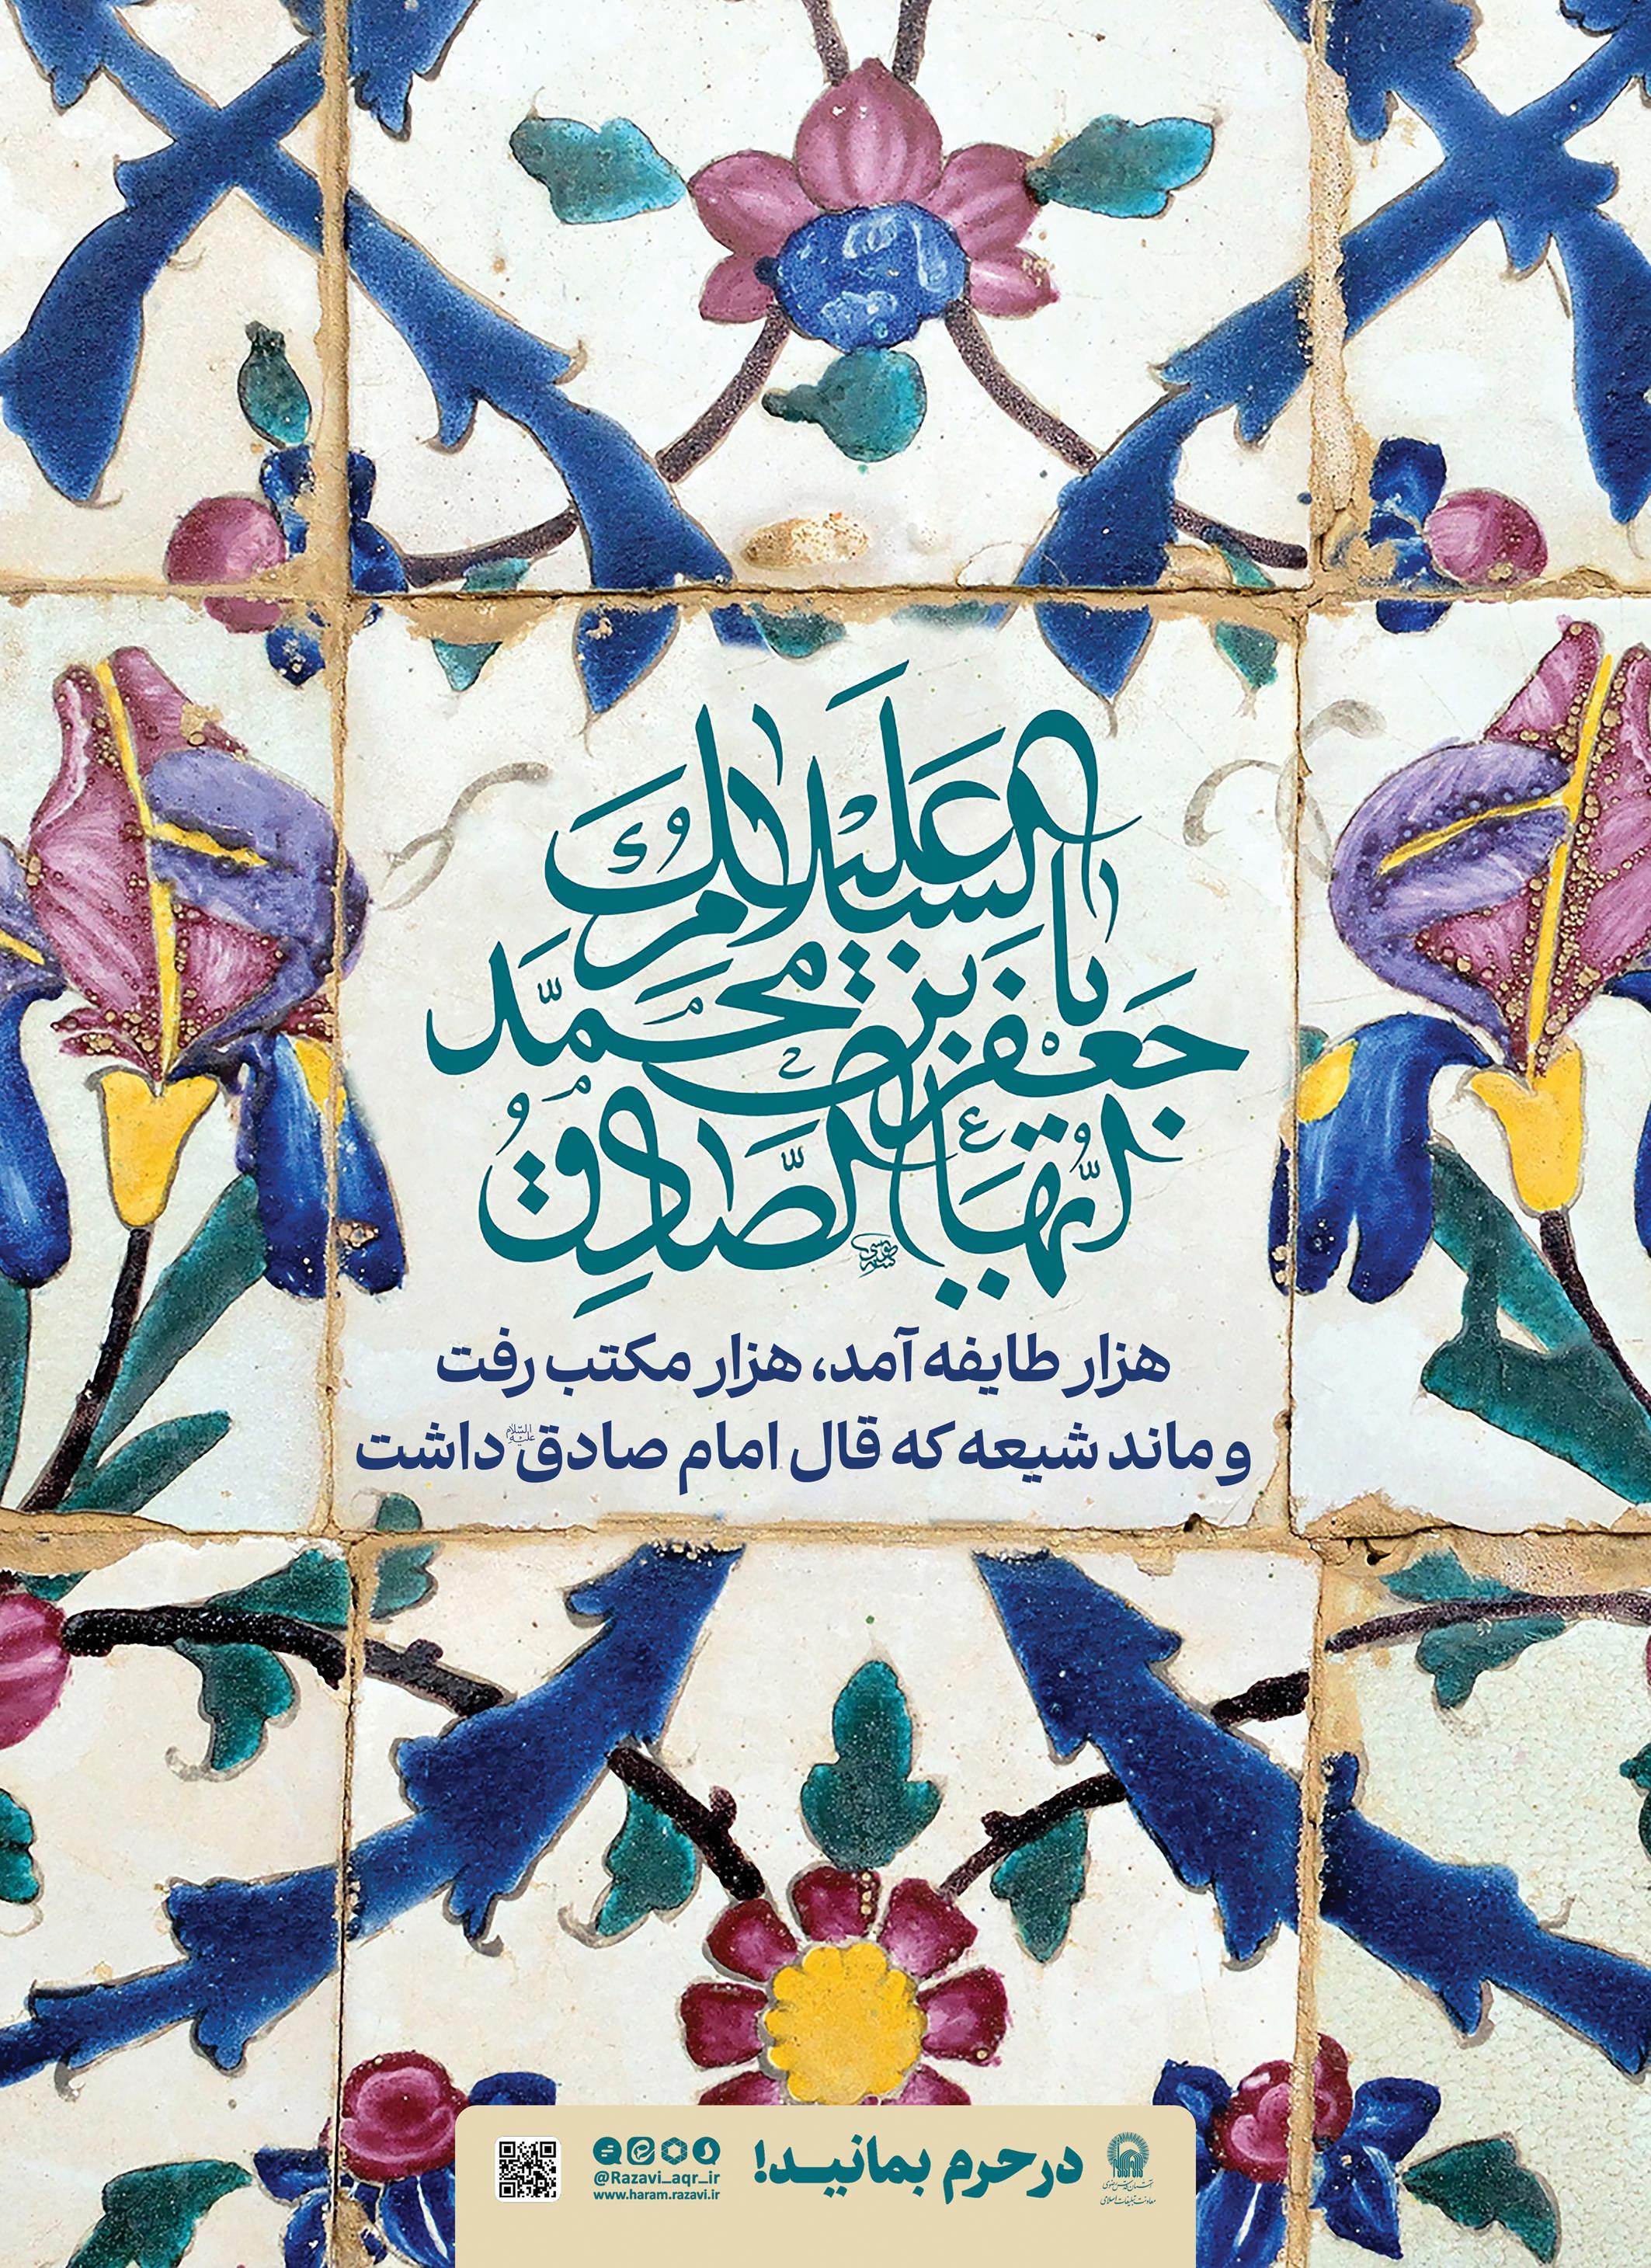 السلام علیک
یا جعفر بن محمد
ایها الصادق
هزار طایفه آمد، هزار مکتب رفت
و ماند شیعه که قال امام صادق علیه‌السلام داشت
در حرم بمانید!
@Razavi_aqr_ir
www.haram.razavi.ir
آستان قدس رضوی
معاونت تبلیغات اسلامی